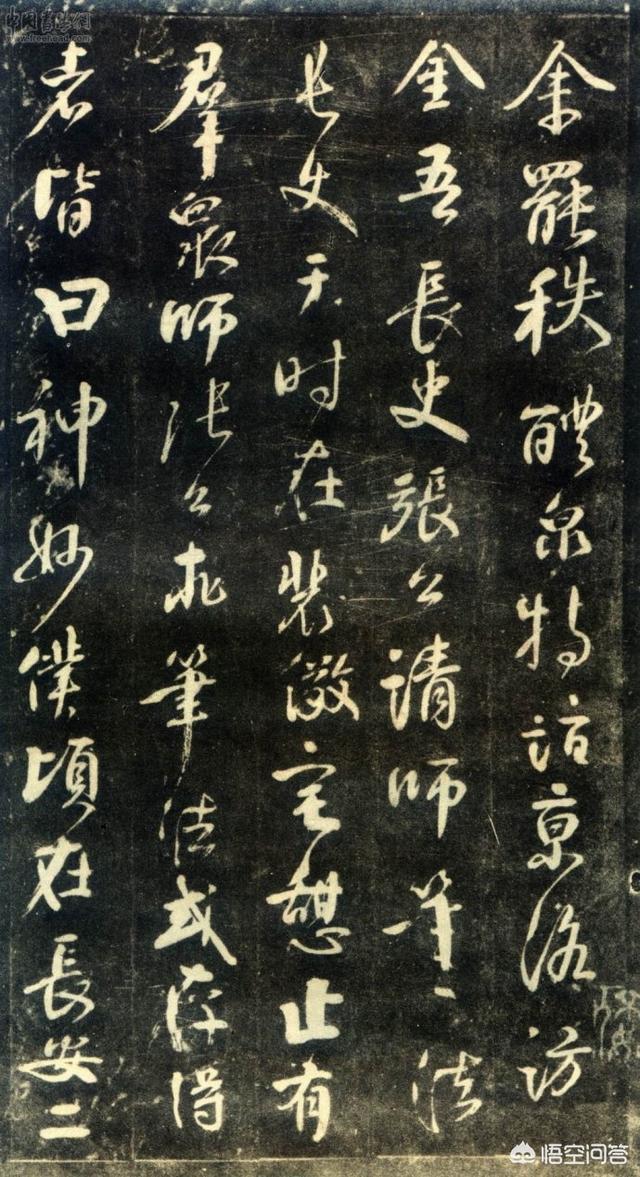 余罷秩醴泉特詣京洛訪
金吾長史張公請師筆法
長史于時在裴儆宅憩止有
羣衆師張公求筆法或存得
者皆曰神妙僕頃在長安二
悟空问答